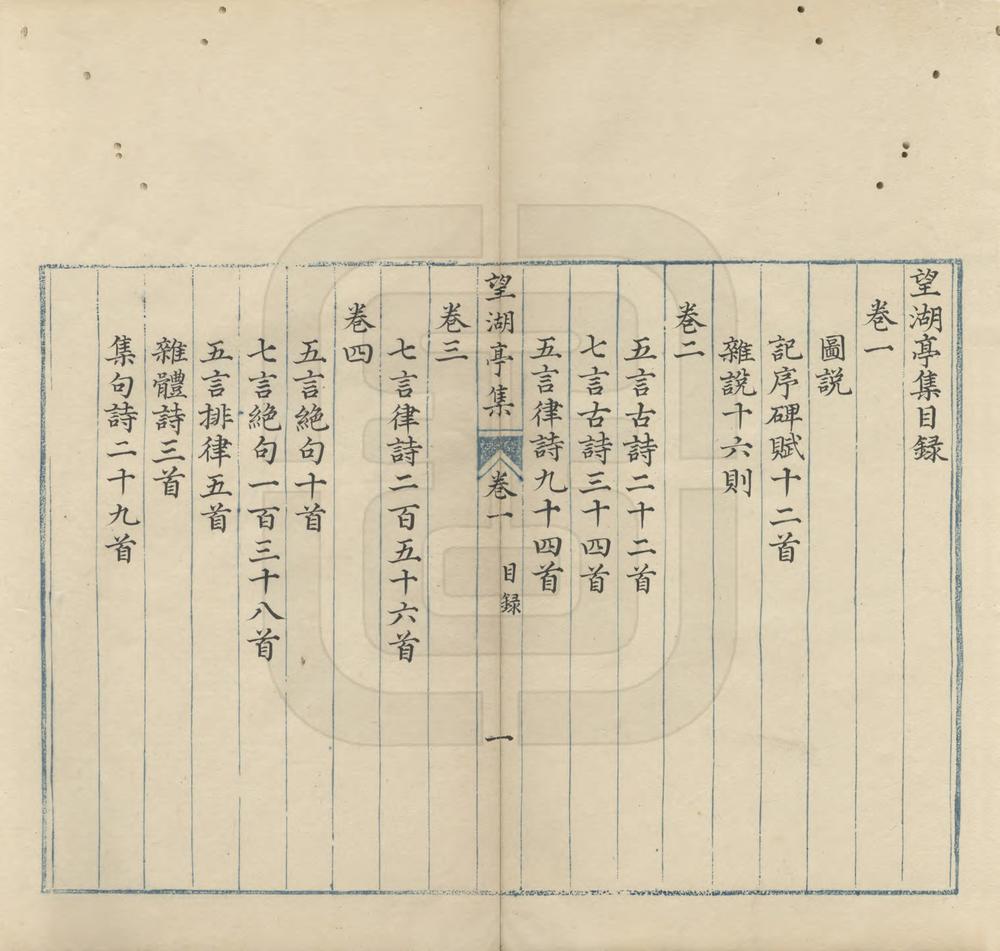 望湖亭集目録
卷一
圖説
記序碑賦十二首
雜説十六則
卷二
五言古詩二十二首
七言古詩三十四首
五言律詩九十四首
望湖亭集 卷一 目録 一
卷三
七言律詩二百五十六首
卷四
五言絶句十首
七言絶句一百三十八首
五言排律五首
雜體詩三首
集句詩二十九首